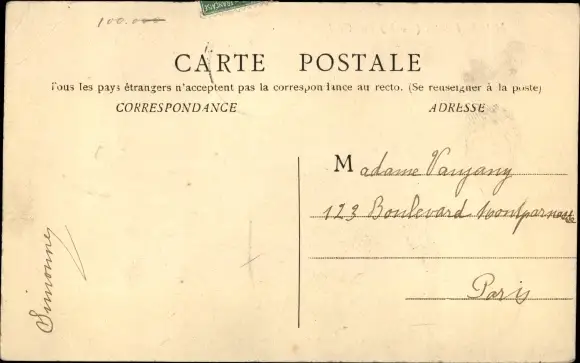 100.000
FRANÇAISE
CARTE POSTALE
Tous les pays étrangers n'acceptent pas la correspondance au recto. (Se renseigner à la poste)
CORRESPONDANCE
ADRESSE
Madame Vanjany
123 Boulevard Montparnasse
Paris
Simonne